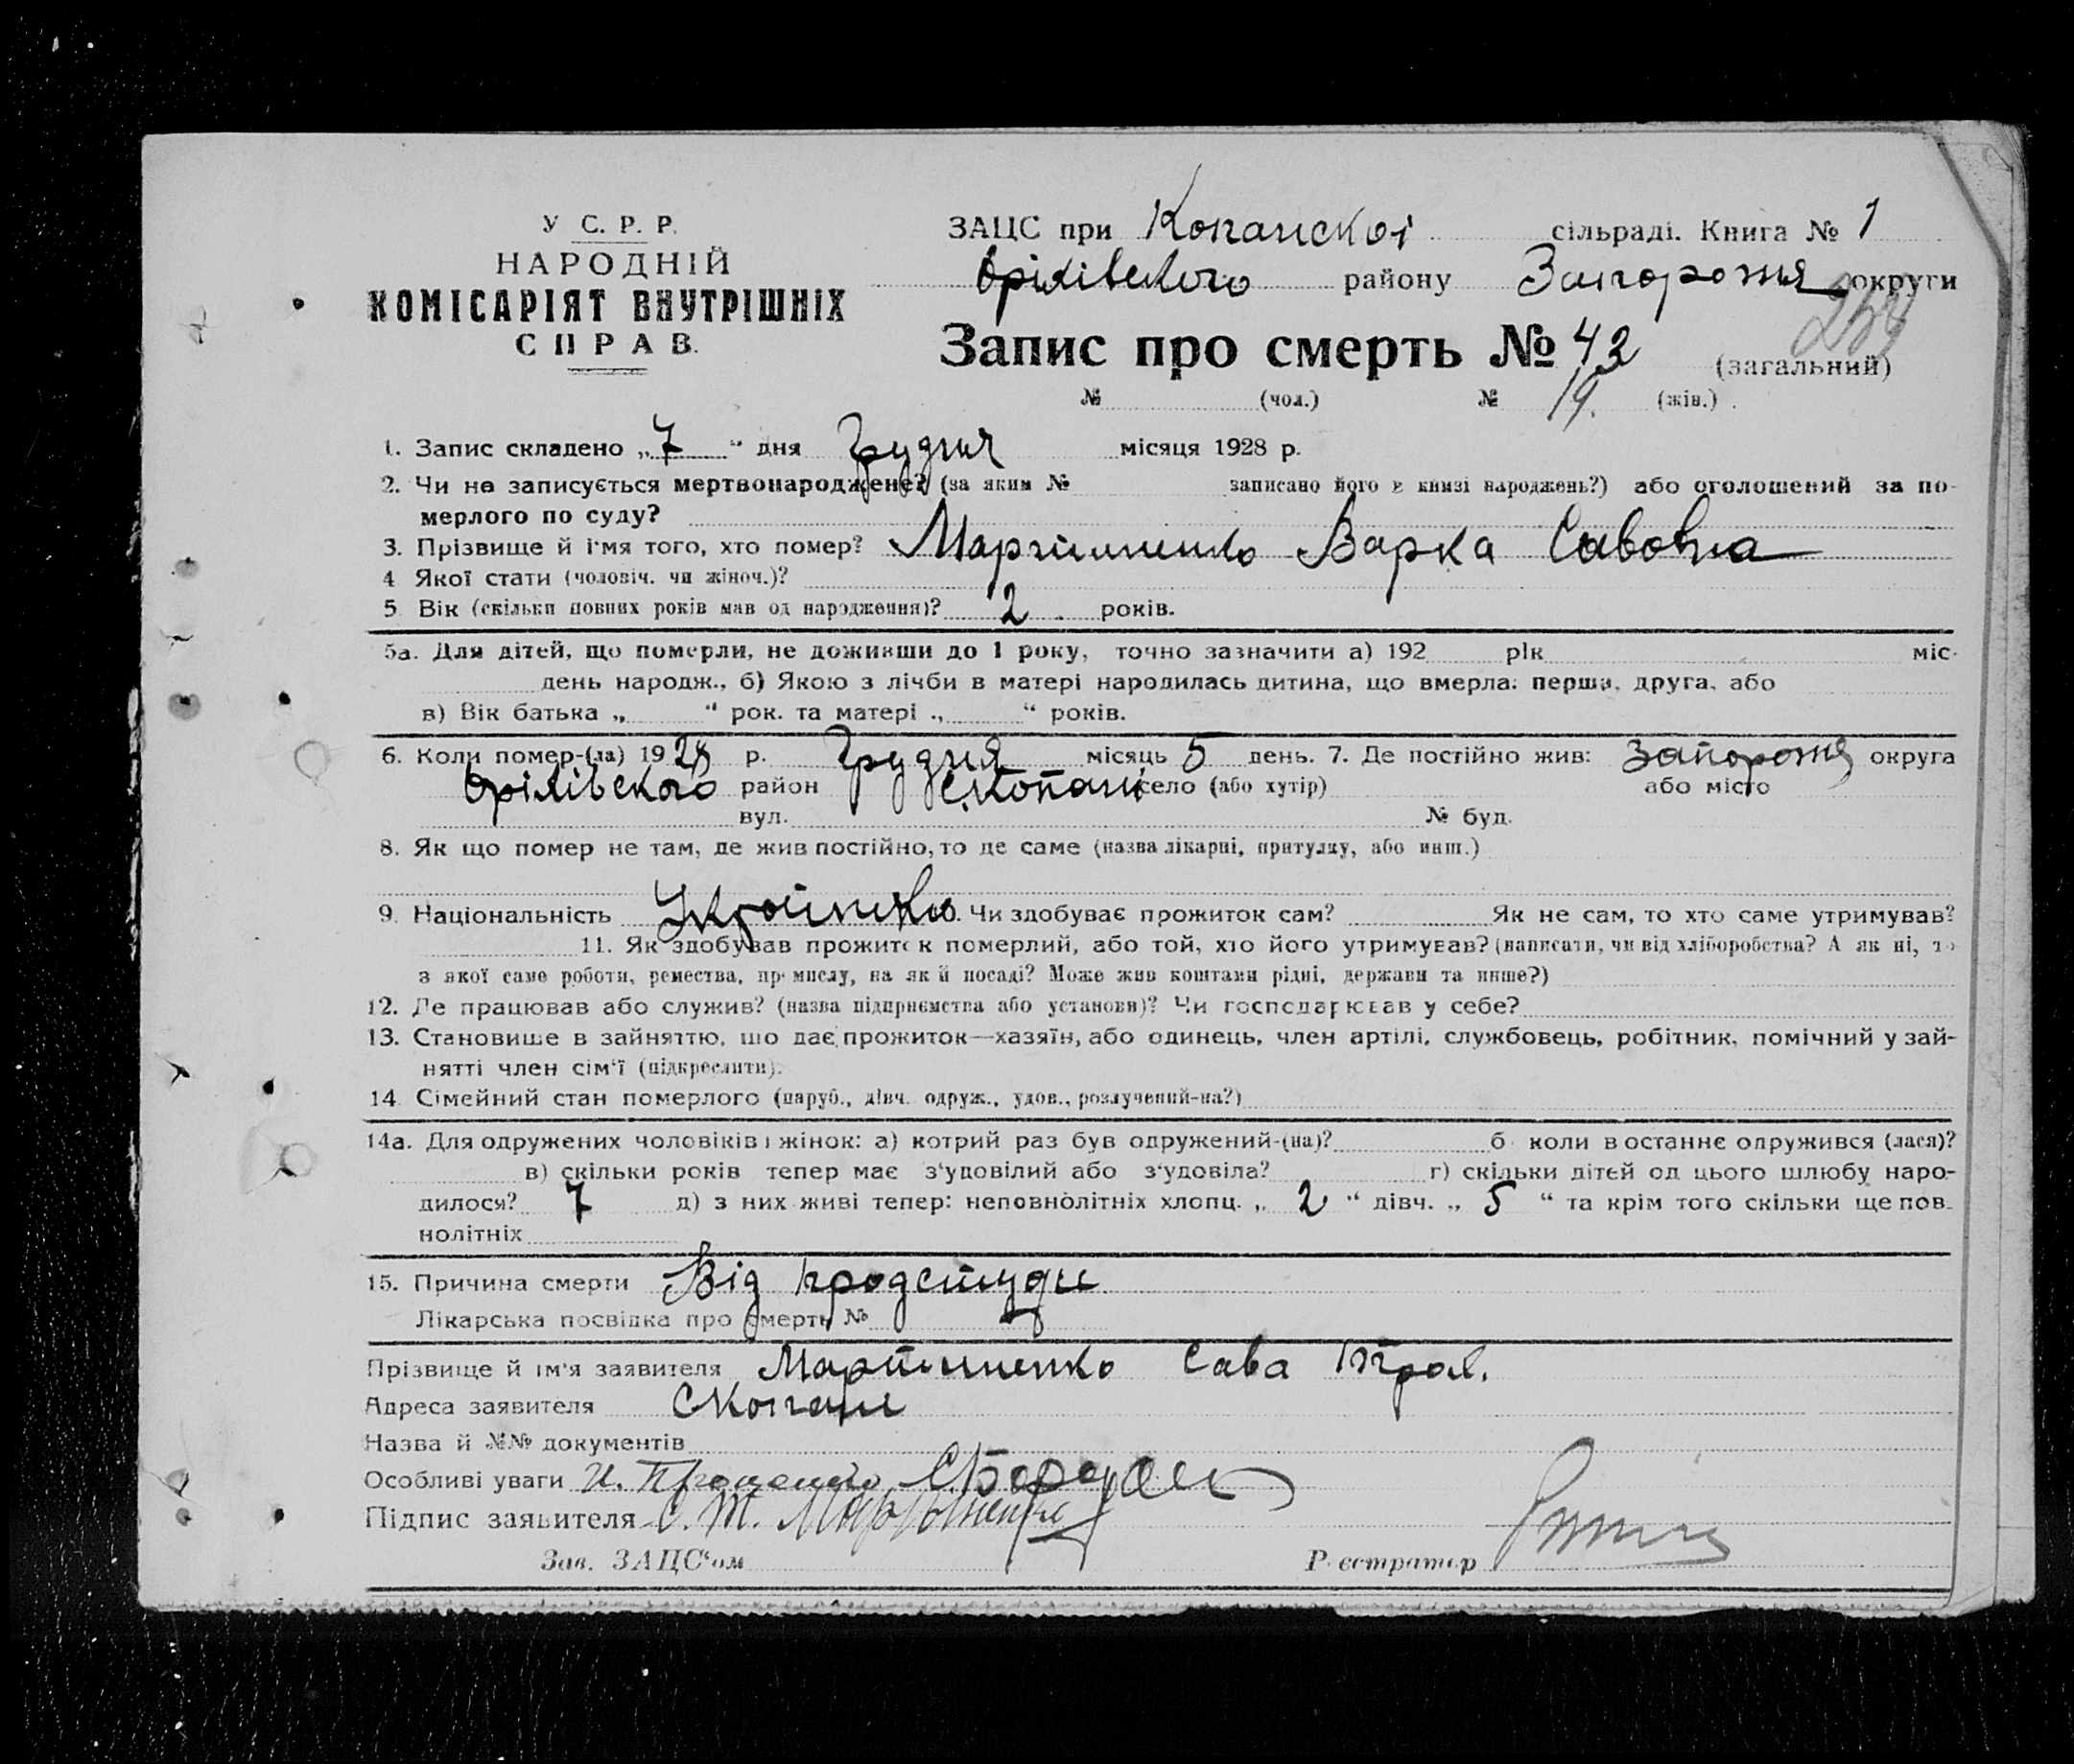 У С. Р. Р.
НАРОДНІЙ
КОМІСАРІЯТ ВНУТРІШНІХ
СПРАВ.
ЗАЦС при Копанскої сільраді. Книга № 1
Оріхівского району Запорожя округи
Запис про смерть № 42 (загальний)
№ (чол.) № 19. (жін.)
1. Запис складено „7“ дня Грудня місяця 1928 р.
2. Чи не записується мертвонароджене? (за яким № записано його в книзі народжень?) або оголошений за по-
мерлого по суду?
3. Прізвище й ім'я того, хто помер? Мартишенко Варка Савовна
4 Якої стати (чоловіч. чи жіноч.)?
5 Вік (скільки повних років мав од народження)? 2 років.
5а. Для дітей, що померли, не доживши до 1 року, точно зазначити а) 192 рік міс.
день народж., б) Якою з лічби в матері народилась дитина, що вмерла: перша, друга, або
в) Вік батька „ “ рок. та матері „ “ років.
6. Коли помер-(ла) 1928 р. Грудня місяць 5 день. 7. Де постійно жив: Запорожя округа
Оріхівского район С. Копані село (або хутір) або місто
вул. № буд.
8. Як що помер не там, де жив постійно, то де саме (назва лікарні, притулку, або инш.)
9. Національність Чи здобуває прожиток сам? Як не сам, то хто саме утримував?
11. Як здобував прожиток померлий, або той, хто його утримував? (написати, чи від хліборобства? А як ні, то
з якої саме роботи, ремества, промислу, на якій посаді? Може жив коштами рідні, держави та инше?)
12. Де працював або служив? (назва підприємства або установи)? Чи господарював у себе?
13. Становище в зайняттю, що дає прожиток—хазяїн, або одинець, член артілі, службовець, робітник, помічний у зай-
нятті член сім'ї (підкреслити).
14 Сімейний стан померлого (паруб., дівч. одруж., удов., розлучений-на?)
14а. Для одружених чоловіків і жінок: а) котрий раз був одружений-(на)? б коли востаннє одружився (лася)?
в) скільки років тепер має з'удовілий або з'удовіла? г) скільки дітей од цього шлюбу наро-
дилося? 7 д) з них живі тепер: неповнолітніх хлопц. „2“ дівч. „5“ та крім того скільки ще пов-
нолітніх
15. Причина смерти Від продстуди
Лікарська посвідка про смерть №
Прізвище й ім'я заявителя Мартишенко Сава
Адреса заявителя С Копані
Назва й №№ документів
Особливі уваги
Підпис заявителя
Зав. ЗАЦС'ом Реєстратор